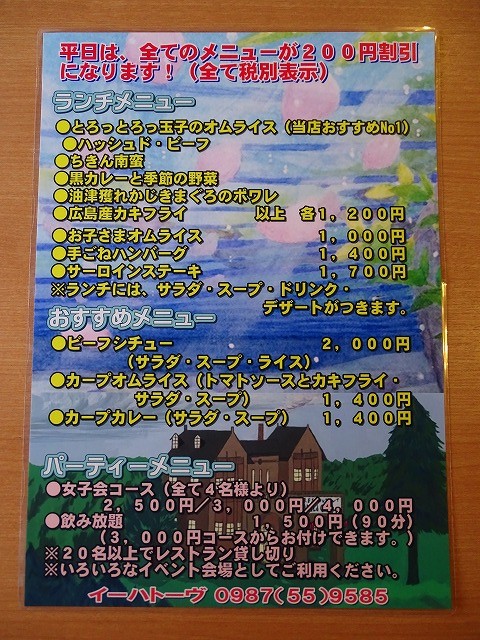 平日は、全てのメニューが200円割引
になります!(全て税別表示)
ランチメニュー
●とろっとろっ玉子のオムライス(当店おすすめNo1)
●ハッシュド・ビーフ
●ちきん南蛮
●黒カレーと季節の野菜
●油津獲れかじきまぐろのポワレ
●広島産カキフライ 以上 各1,200円
●お子さまオムライス 1,000円
●手ごねハンバーグ 1,400円
●サーロインステーキ 1,700円
※ランチには、サラダ・スープ・ドリンク・
デザートがつきます。
おすすめメニュー
●ビーフシチュー 2,000円
(サラダ・スープ・ライス)
●カープオムライス(トマトソースとカキフライ・
サラダ・スープ) 1,400円
●カープカレー(サラダ・スープ) 1,400円
パーティーメニュー
●女子会コース(全て4名様より)
2,500円/3,000円/4,000円
●飲み放題 1,500円(90分)
(3,000円コースからお付けできます。)
※20名以上でレストラン貸し切り
※いろいろなイベント会場としてご利用ください。
イーハトーヴ 0987(55)9585